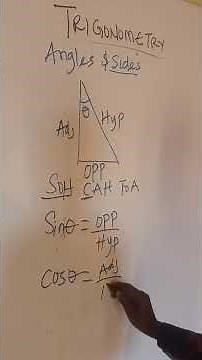 TRIGONOMETRY
Angles & Sides
θ
Adj
Hyp
OPP
SOH CAH TOA
Sinθ = OPP
Hyp
cosθ = Adj